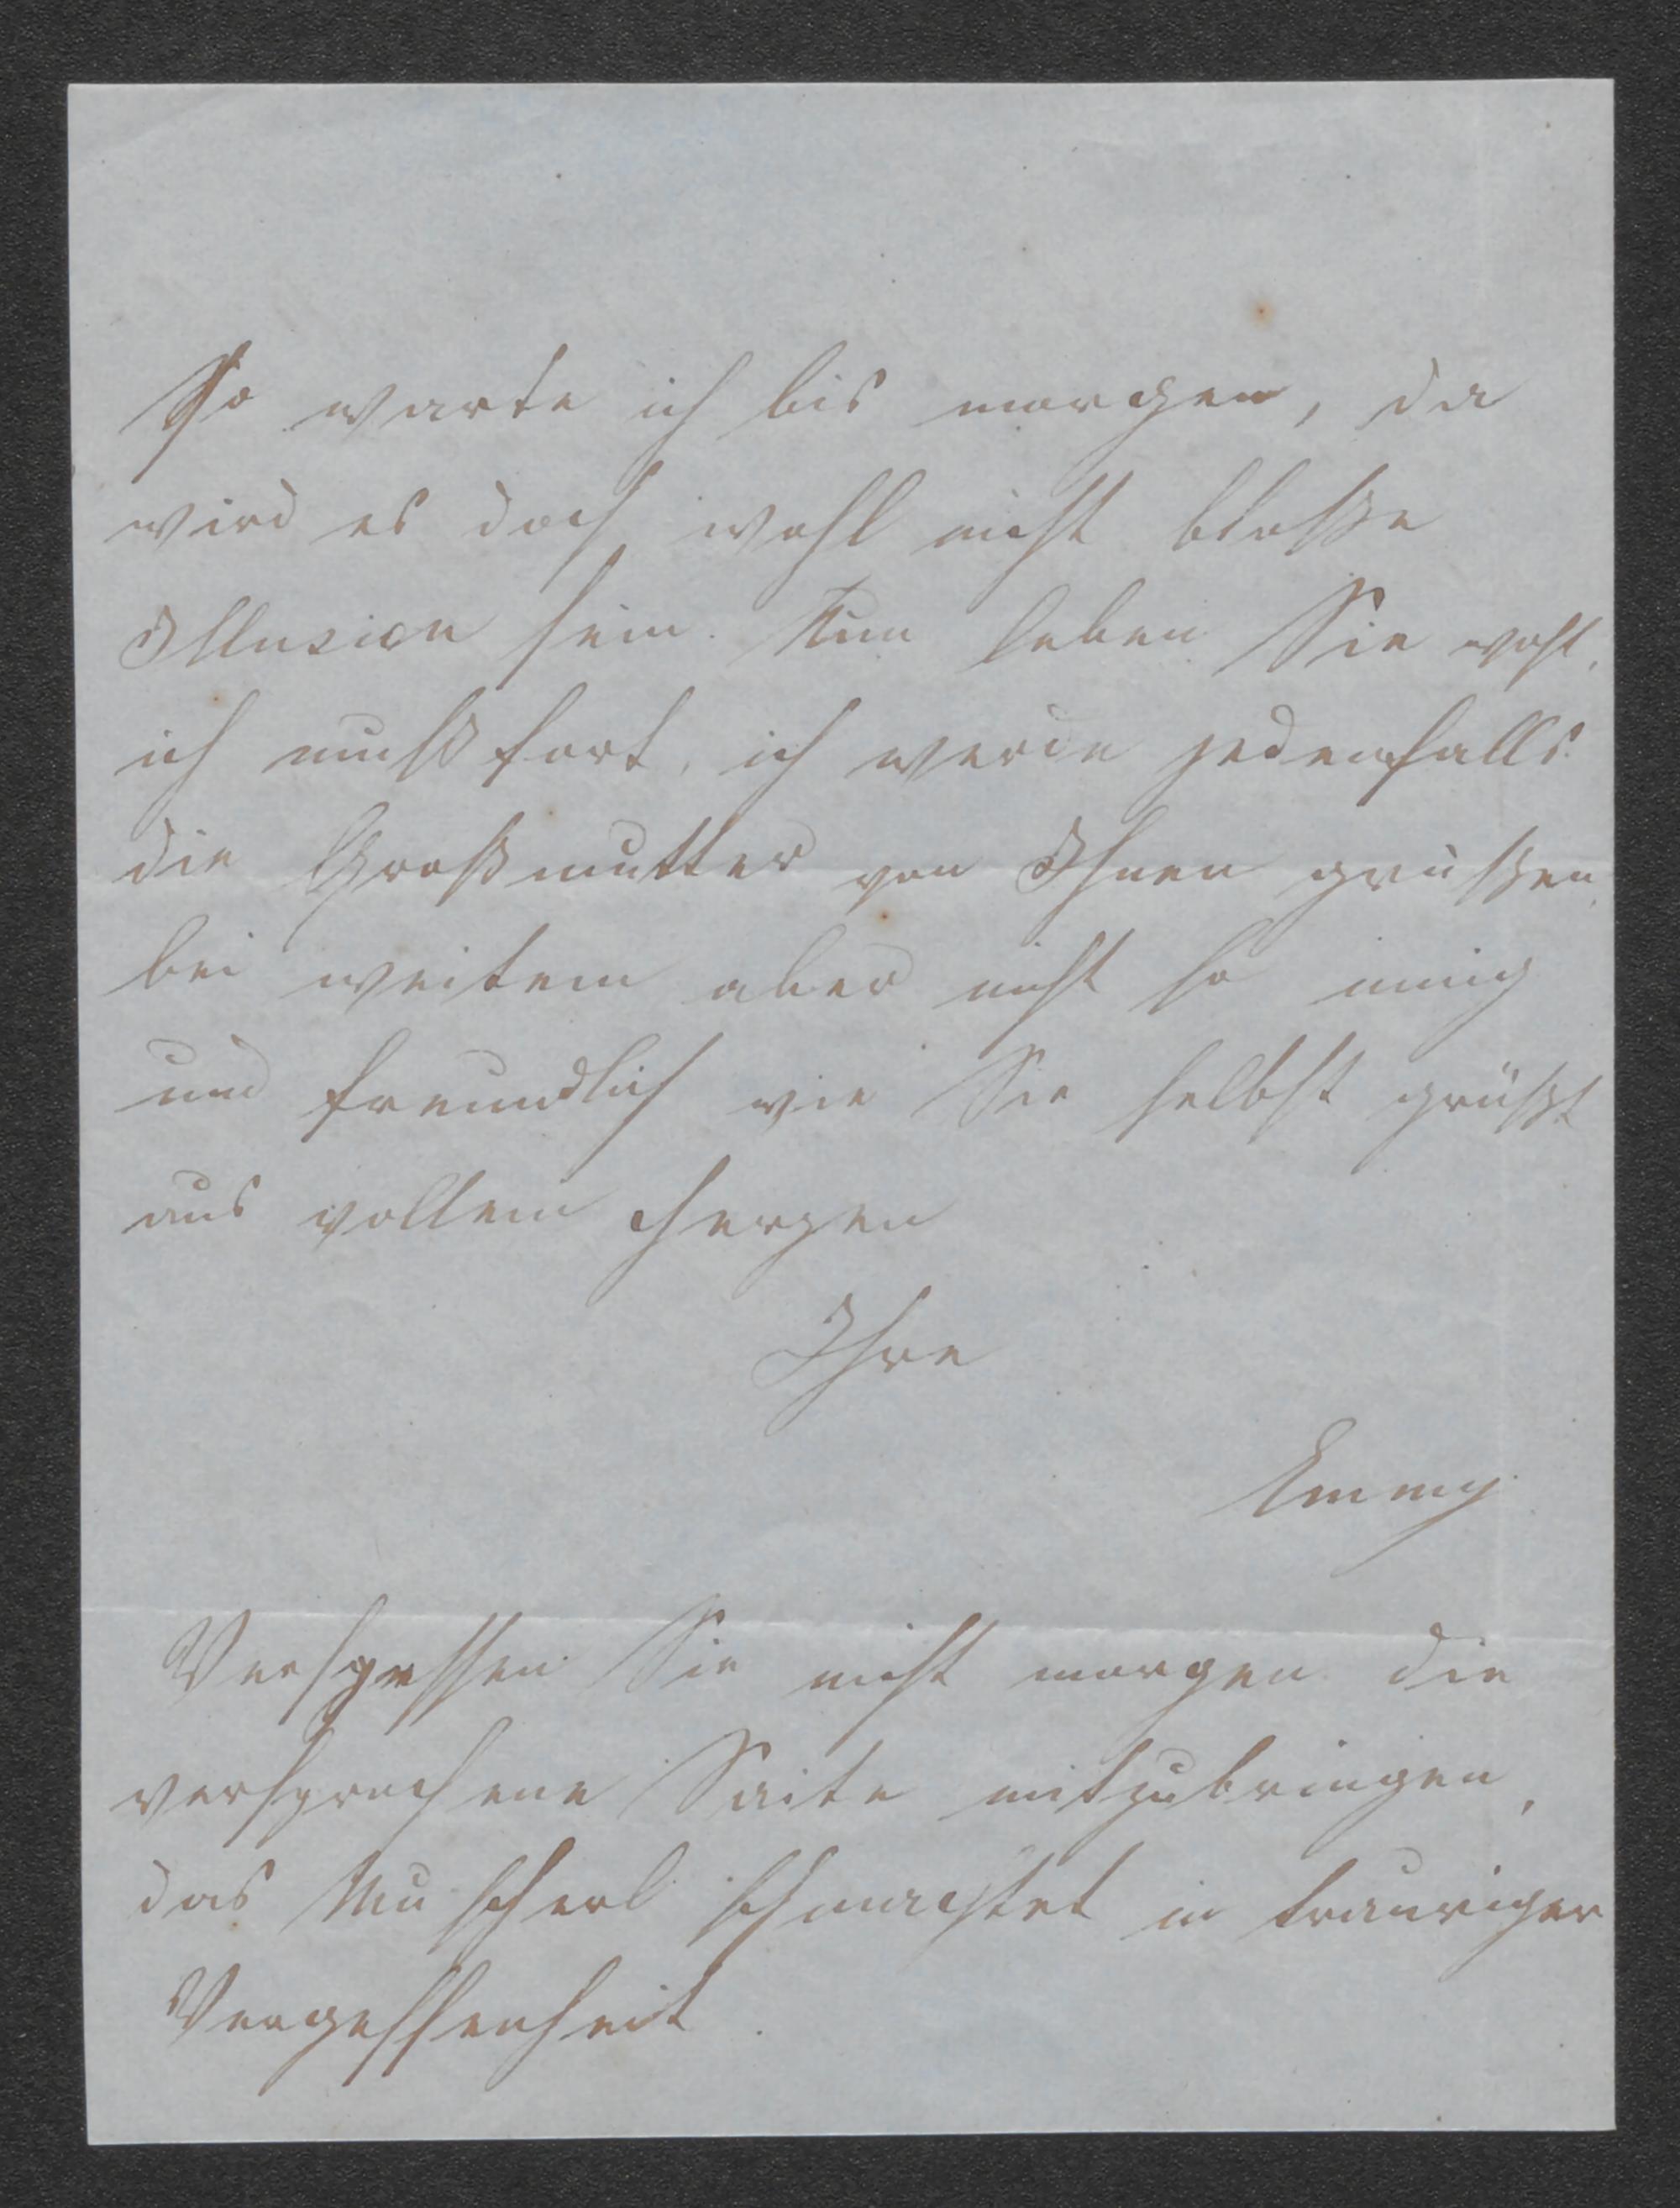 So warte ich bis morgen, da
wird es doch wohl nicht bloße
Illusion sein. Nun leben Sie wohl,
ich muß fort, ich werde jedenfalls
die Großmutter von Ihnen grüßen,
bei weitem aber nicht so innig
und freundlich wie Sie selbst grüßt
aus vollem Herzen
Ihre
Emmy
Vergessen Sie nicht morgen die
versprochene Saite mitzubringen,
das schmachtet in trauriger
Vergessenheit.